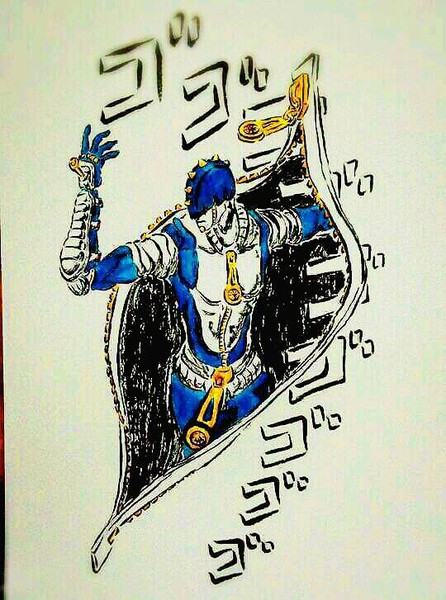 ゴ
ゴ
ゴ
ゴ
ゴ
ゴ
ゴ
ゴ